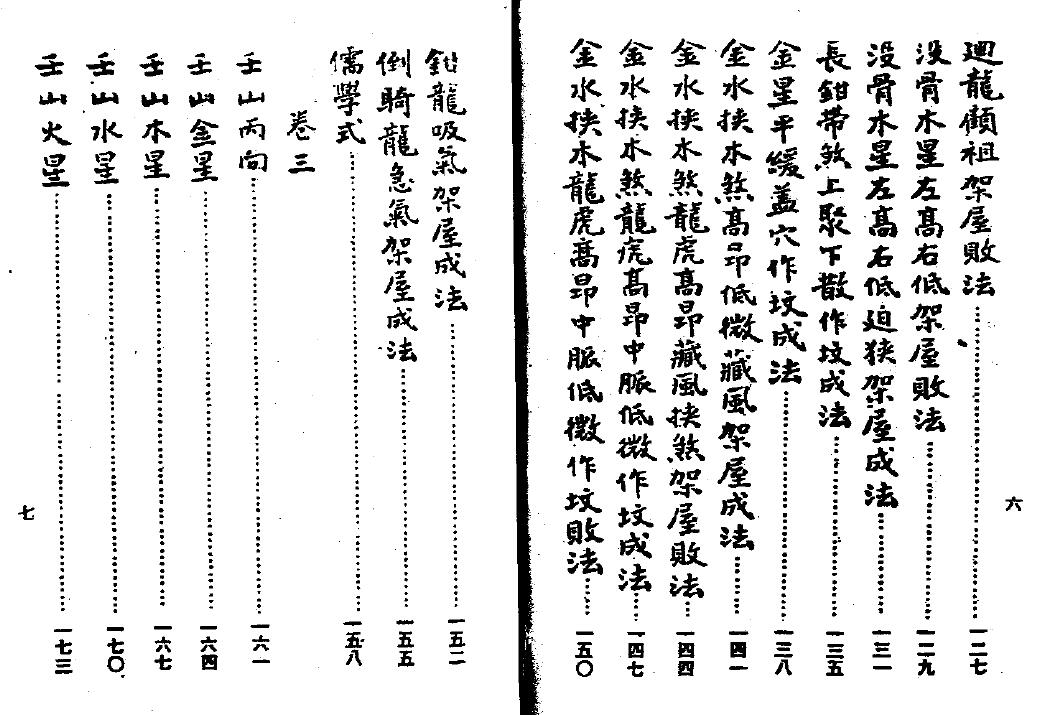 廻龍顧祖架屋敗法…一二七
没骨木星左高右低架屋敗法…一二九
没骨木星左高右低迫狹架屋成法…一三一
長鉗帶煞上聚下散作坟成法…一三五
金星平緩蓋穴作坟成法…一三八
金水挟木煞高昂低微藏風架屋成法…一四一
金水挟木煞龍虎高昂藏風挟煞架屋敗法…一四四
金水挟木煞龍虎高昂中脈低微作坟成法…一四七
金水挟木龍虎高昂中脈低微作坟敗法…一五〇
六
鉗龍吸氣架屋成法…一五二
倒騎龍急氣架屋成法…一五五
儒學式…一五八
卷三
壬山丙向…一六一
壬山金星…一六四
壬山木星…一六七
壬山水星…一七〇
壬山火星…一七三
七